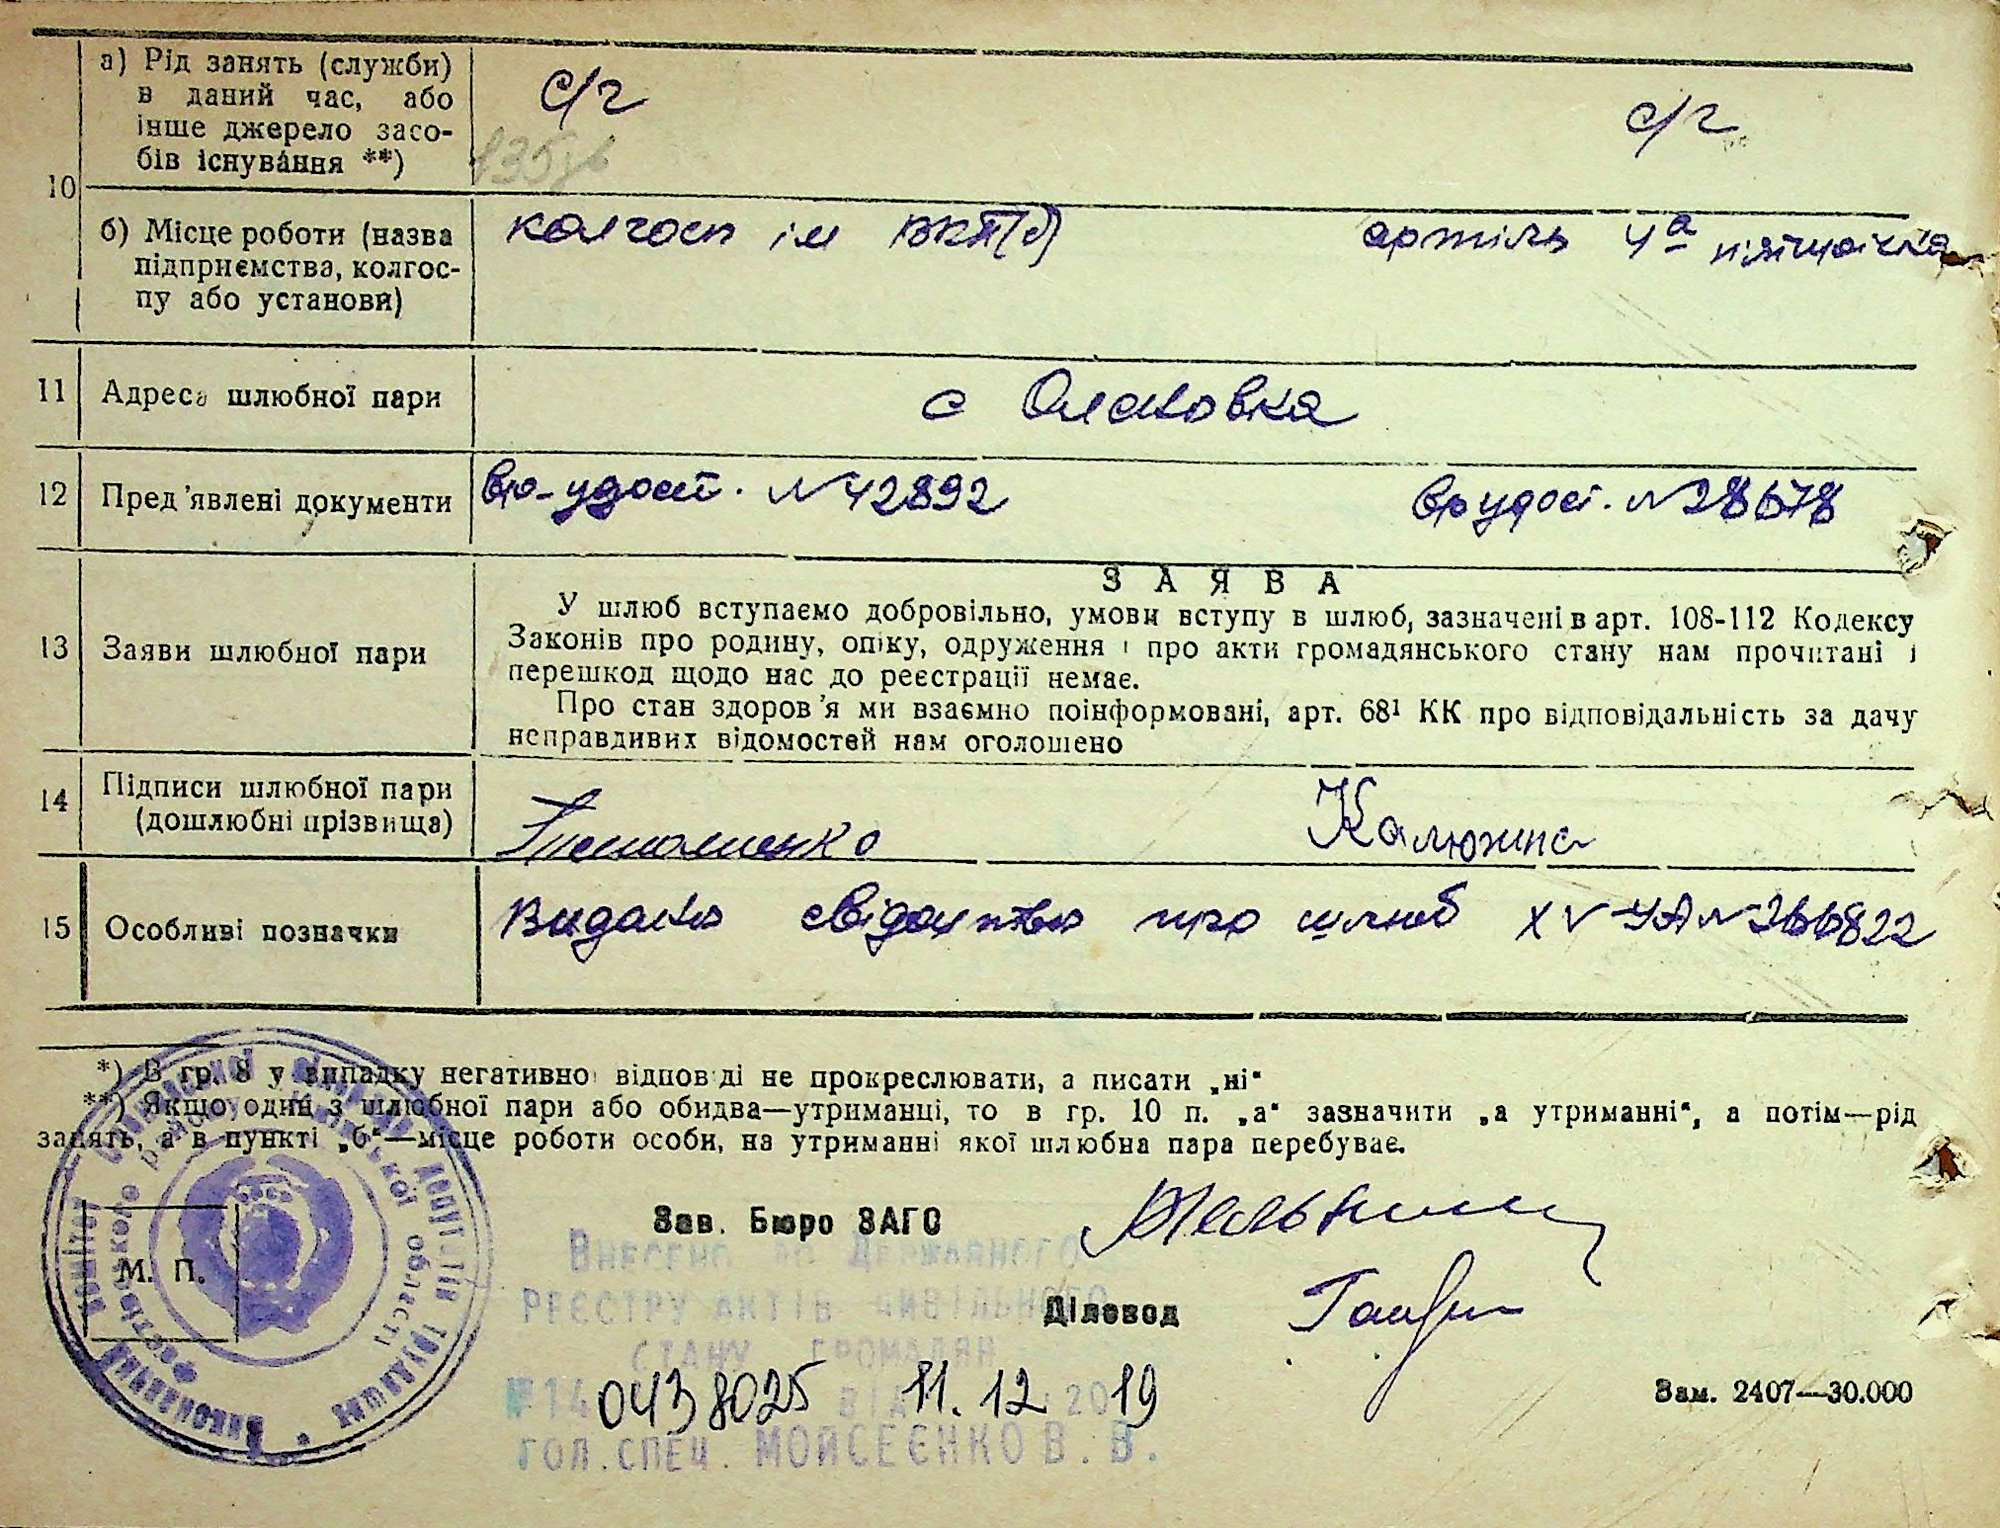 10
а) Рід занять (служби)
в даний час, або
інше джерело засо-
бів існування **)
с/г
с/г
б) Місце роботи (назва
підприємства, колгос-
пу або установи)
колгосп ім ВКП(б)
артіль 4а пятирічка
11 Адреса шлюбної пари
с
12 Пред'явлені документи
вр-удост. № 42892
вр удост. № 28678
13 Заяви шлюбної пари
ЗАЯВА
У шлюб вступаємо добровільно, умови вступу в шлюб, зазначені в арт. 108-112 Кодексу
Законів про родину, опіку, одруження і про акти громадянського стану нам прочитані і
перешкод щодо нас до реєстрації немає.
Про стан здоров'я ми взаємно поінформовані, арт. 68¹ КК про відповідальність за дачу
неправдивих відомостей нам оголошено
14 Підписи шлюбної пари
(дошлюбні прізвища)
Калюжна
15 Особливі позначки
Видано свідоцтво про шлюб XV-УА № 266822
*) В гр. 8 у випадку негативної відповіді не прокреслювати, а писати „ні“
**) Якщо один з шлюбної пари або обидва—утриманці, то в гр. 10 п. „а“ зазначити „а утриманні“, а потім—рід
занять, а в пункті „б“—місце роботи особи, на утриманні якої шлюбна пара перебуває.
Зав. Бюро ЗАГС
М. П.
Діловод
Внесено до Державного
реєстру актів цивільного
стану громадян
№ 14 0438025 від 11.12 2019
гол.спец. Мойсеєнко В. В.
Зам. 2407—30.000